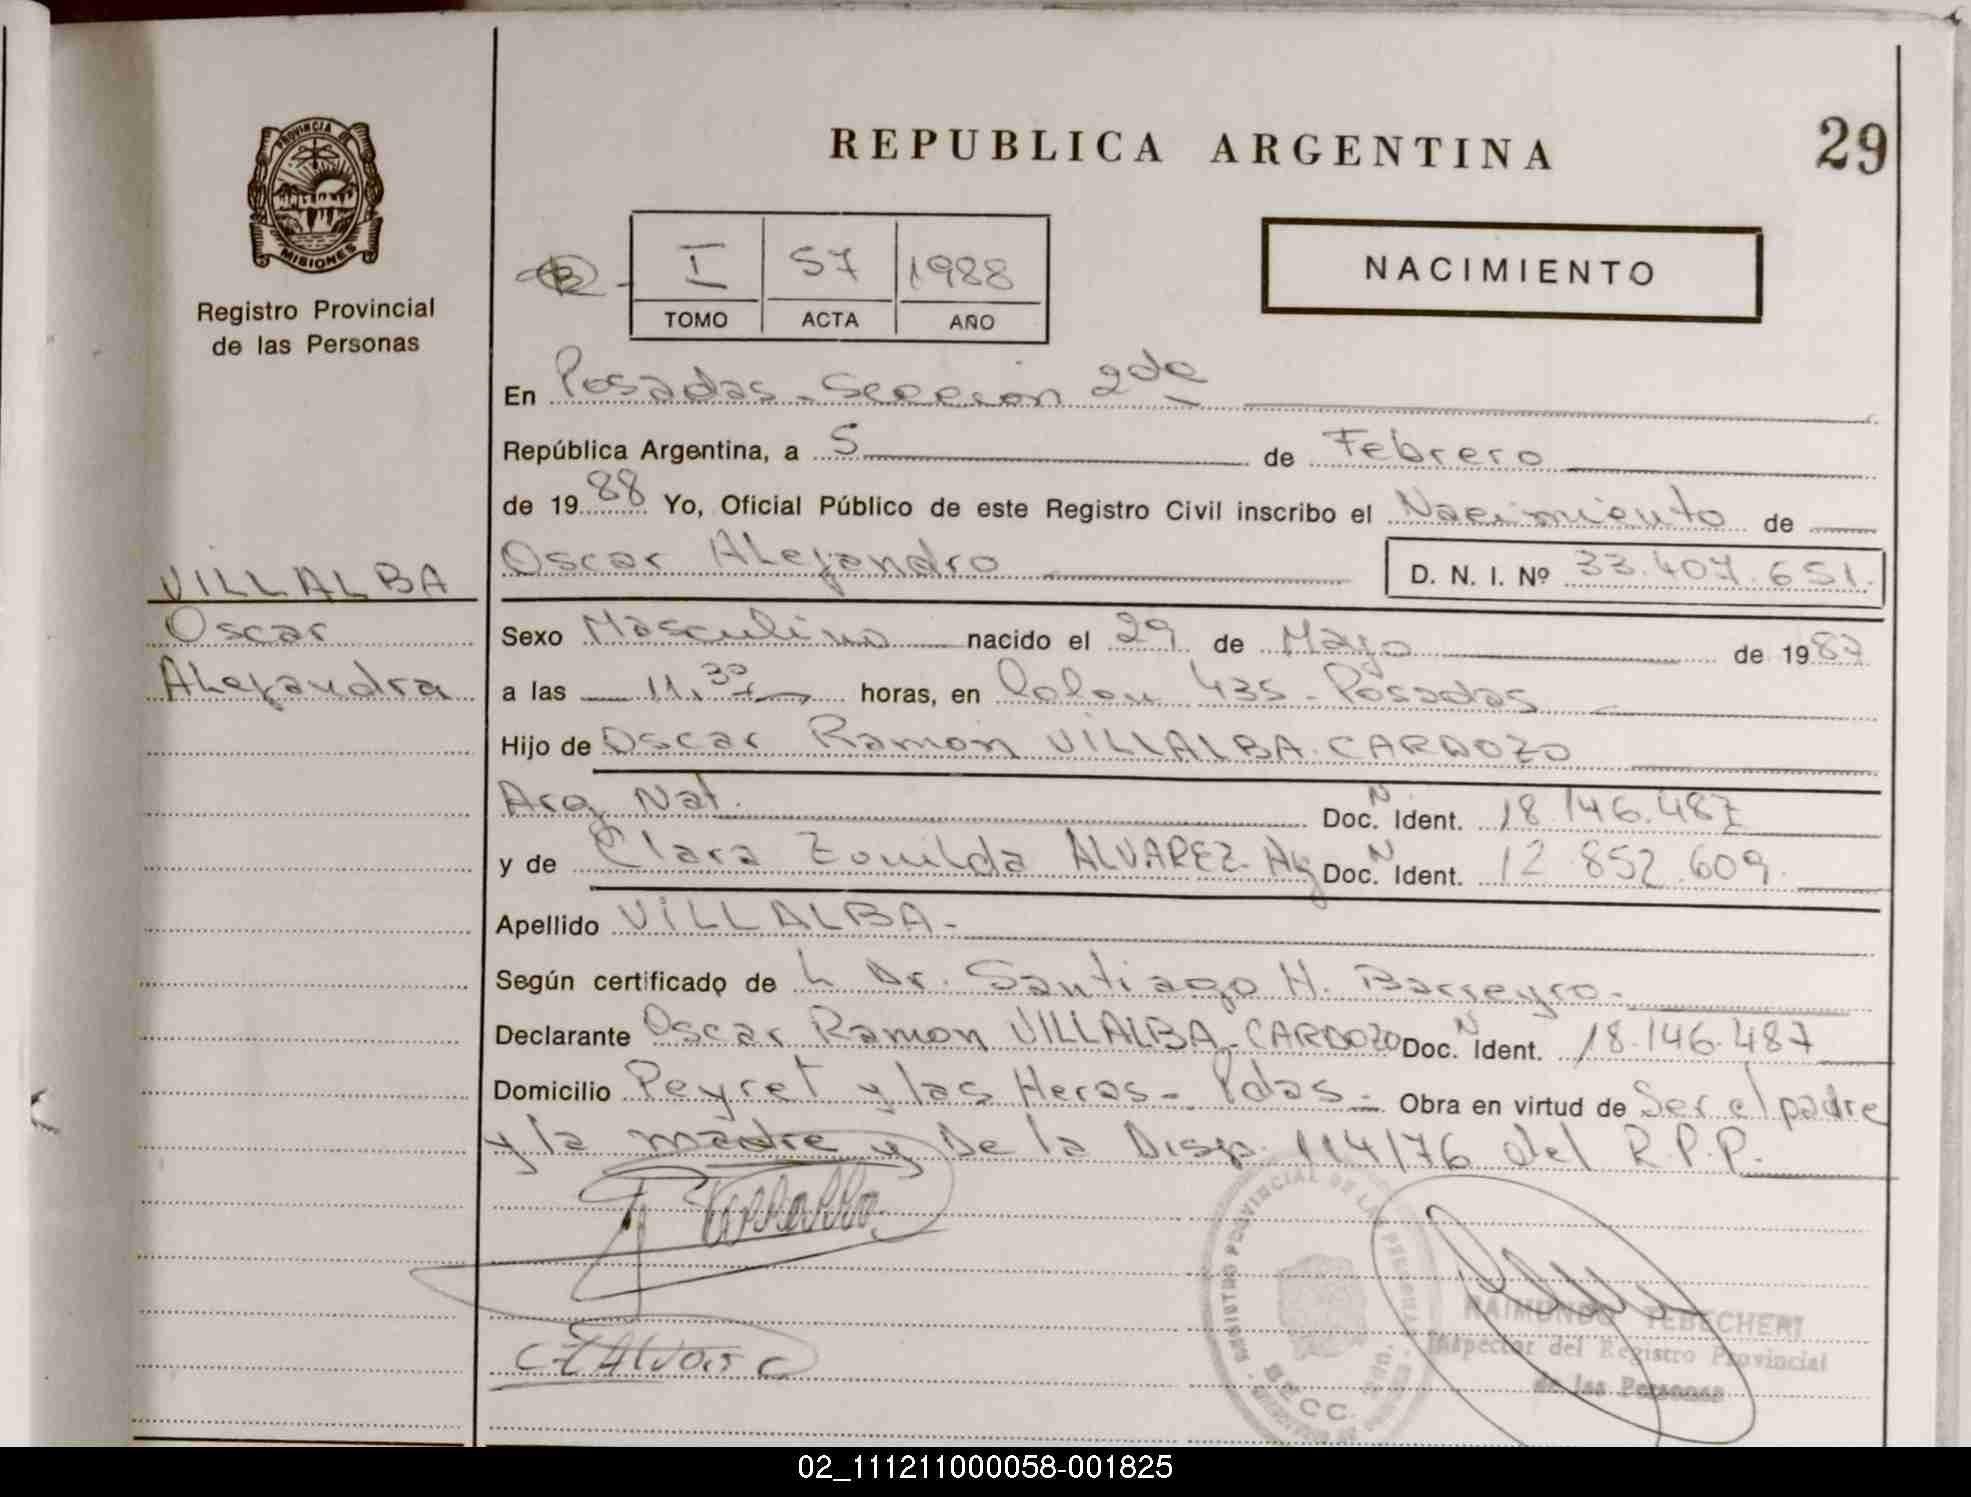 PROVINCIA
MISIONES
Registro Provincial
de las Personas
REPUBLICA ARGENTINA
29
I 57 1988
TOMO ACTA AÑO
NACIMIENTO
En Posadas - Seccion 2da
República Argentina, a 5 de Febrero
de 1988 Yo, Oficial Público de este Registro Civil inscribo el Nacimiento de
Oscar Alejandro D. N. I. Nº 33.407.651.
VILLALBA
Oscar
Alejandro
Sexo Masculino nacido el 29 de Mayo de 1987
a las 11,30 horas, en Colon 435 - Posadas
Hijo de Oscar Ramon VILLALBA - CARDOZO
Arg. Nat. Doc. N Ident. 18.146.487
y de Clara Zonilda ALVAREZ - Arg Doc. N Ident. 12.852.609.
Apellido VILLALBA -
Según certificado de Dr. Santiago H. Barreyro -
Declarante Oscar Ramon VILLALBA - CARDOZO Doc. N Ident. 18.146.487
Domicilio Peyret y las Heras - Pdas - Obra en virtud de Ser el padre
y la madre y De la Disp. 114/76 del R.P.P.
REGISTRO PROVINCIAL DE LAS PERSONAS
RAIMUNDO TEBECHERI
Inspector del Registro Provincial
de las Personas
02_111211000058-001825